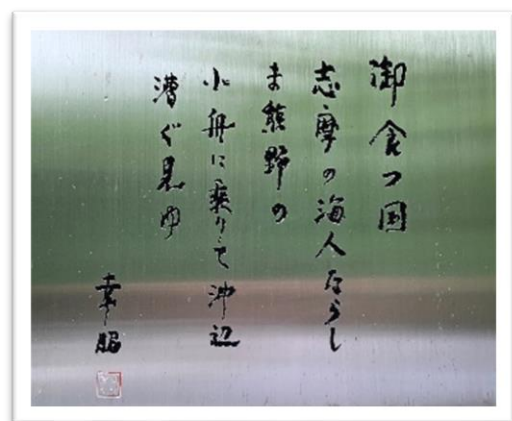 御食つ国
志摩の海人ならし
ま熊野の
小舟に乗りて沖辺
漕ぐ見ゆ
幸昭